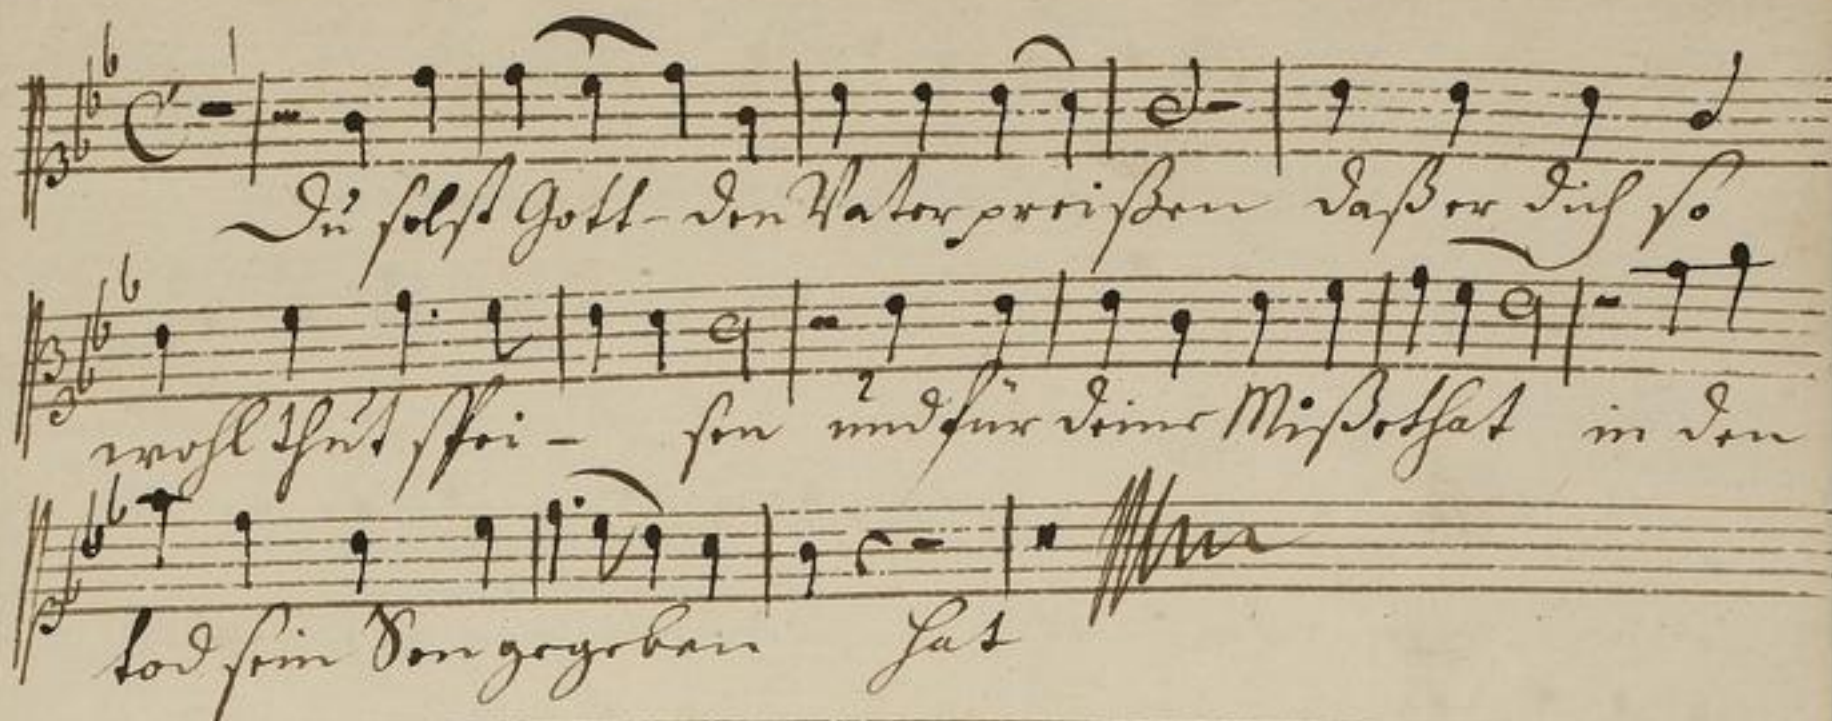 Du solst Gott - den Vater preißen daß er dich so
wohl thut spei - sen und für deine Mißethat in den
tod sein Son gegeben hat